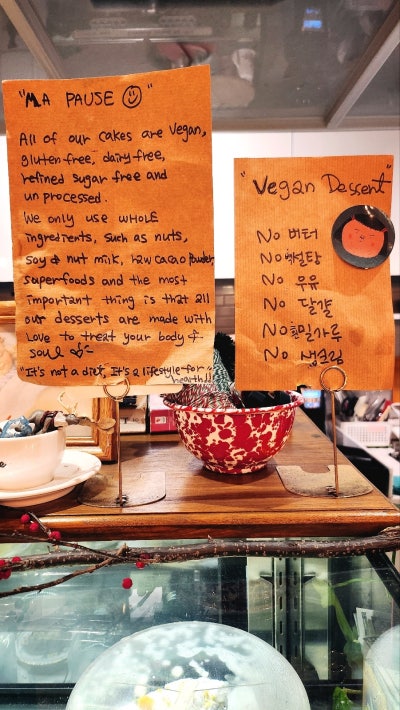 "MA PAUSE ☺"
All of our cakes are vegan,
gluten-free, dairy-free,
refined sugar free and
unprocessed.
We only use WHOLE
ingredients, such as nuts,
soy & nut milk, raw cacao powder,
superfoods and the most
important thing is that all
our desserts are made with
Love to treat your body &
soul
"It's not a diet, It's a lifestyle for
hearth!!"
"Vegan Dessert"
No 버터
No 백설탕
No 우유
No 달걀
No 흰밀가루
No 생크림